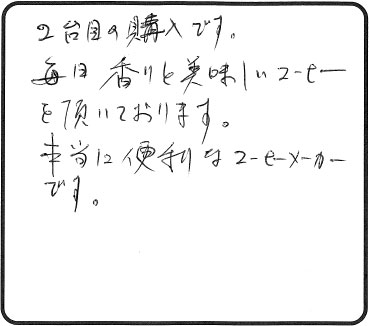 2台目の購入です。
毎日 香りと美味しいコーヒー
を頂いております。
本当に便利なコーヒーメーカー
です。